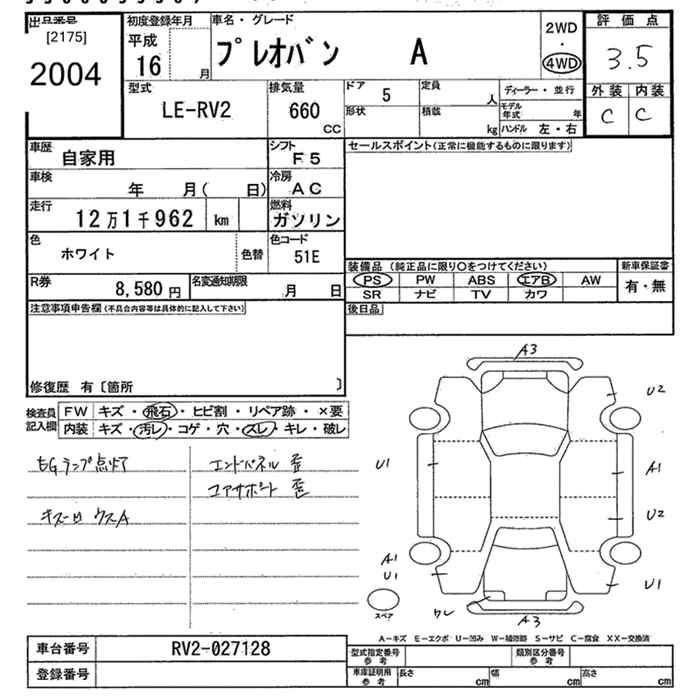 出品番号
[2175]
2004
初度登録年月
平成
16 月
車名・グレード
プレオバン A
2WD
・
4WD
評価点
3.5
外装 内装
C C
型式
LE-RV2
排気量
660
CC
ドア
5
定員
人
ディーラー・並行
形状
積載
kg
モデル年式 年
ハンドル 左・右
車歴
自家用
シフト
F5
セールスポイント(正常に機能するものに限ります)
車検
年 月( 日)
冷房
AC
走行
12万1千962 km
燃料
ガソリン
色
ホワイト
色替
色コード
51E
装備品 (純正品に限り○をつけてください)
新車保証書
PS PW ABS エアB AW
有・無
SR ナビ TV カワ
R券
8,580 円
名変通知期限
月 日
後日品
注意事項申告欄(不具合内容等は具体的に記入して下さい)
修復歴 有〔箇所 〕
検査員記入欄
FW キズ・飛石・ヒビ割・リペア跡・×要
内装 キズ・汚レ・コゲ・穴・スレ・キレ・破レ
EGランプ点灯
エンドパネル 歪
コアサポート 歪
キズ凹 ウスA
A3
U2
U1
A1
U2
A1
U1
U1
ワレ
A3
スペア
A-キズ E-エクボ U-凹み W-補修跡 S-サビ C-腐食 XX-交換済
車台番号
RV2-027128
型式指定番号
参考
類別区分番号
参考
登録番号
車庫証明用
参考
長さ cm
幅 cm
高さ cm